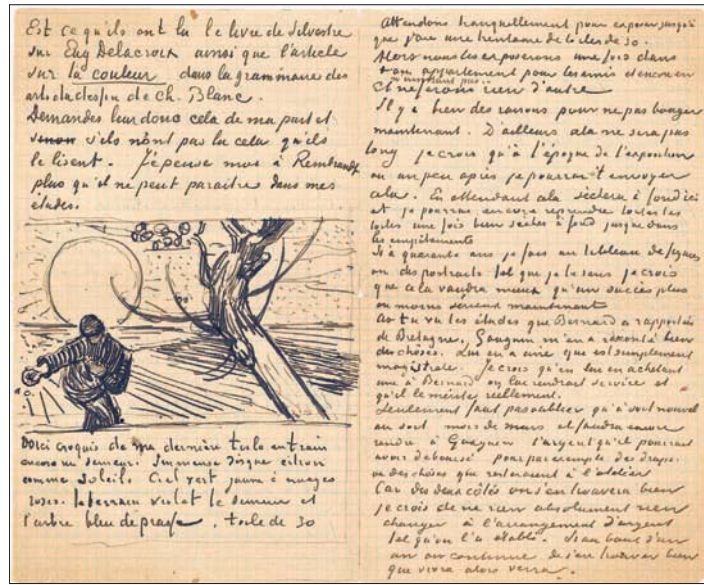 Est ce qu'ils ont lu le livre de Silvestre
sur Eug Delacroix ainsi que l'article
sur la couleur dans la grammaire des
arts du dessin de Ch. Blanc.
Demandes leur donc cela de ma part et
sinon s'ils n'ont pas lu cela qu'ils
le lisent. J'epense moi à Rembrandt
plus qu'il ne peut paraitre dans mes
études.
Voici croquis de ma dernière toile en train
encore un semeur. Immense disque citron
comme soleil. Ciel vert jaune à nuages
roses. le terrain violet le semeur et
l'arbre bleu de prusse. toile de 30
Attendons tranquillement pour exposer jusqu'à
que j'aie une trentaine de toiles de 30.
Alors nous les exposerons une fois dans
ton appartement pour les amis et encore en
n'insistant pas.
Et ne ferons rien d'autre
Il y a bien des raisons pour ne pas bouger
maintenant. D'ailleurs cela ne sera pas
long je crois qu'à l'époque de l'exposition
ou un peu après je pourrai t envoyer
cela. En attendant cela sèchera à fond ici
et je pourrai encore reprendre toutes les
toiles une fois bien sèches à fond jusque dans
les empâtements
Si à quarante ans je fais un tableau de figures
ou des portraits tel que je le sens je crois
que cela vaudra mieux qu'un succès plus
ou moins sérieux maintenant
As tu vu les études que Bernard a rapportés
de Bretagne, Gauguin m'en a raconté bien
des choses. Lui en a une que est simplement
magistrale. Je crois qu'en lui en achetant
une à Bernard on lui rendrait service et
qu'il le mérite réellement.
Seulement faut pas oublier qu'à nouvel
au mois de mars et faudra encore
rendre à Gauguin l'argent qu'il pourrait
avoir déboursé pour par exemple des draps
ou des choses que resteraient à l'atelier
Car des deux côtés on s'en trouvera bien
je crois de ne rien absolument rien
changer à l'arrangement d'argent
tel qu'on l'a établi. Si au bout d'un
an on continue de s'en trouver bien
que vivra alors verra.